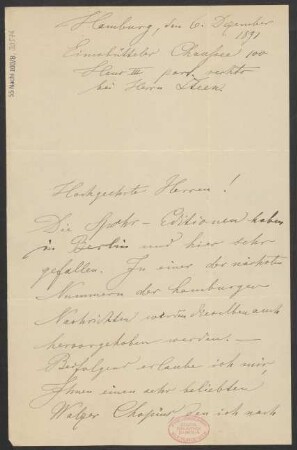 Hamburg, den 6. Dezember
1891
Eimsbütteler Chaussee 100
Haus III part. rechts
bei Herrn
Hochgeehrte Herren!
Die Spohr-Editionen haben
in Berlin und hier sehr
gefallen. In einer der nächsten
Nummern der Hamburger
Nachrichten werden dieselben auch
hervorgehoben werden. —
Beifolgend erlaube ich mir
Ihnen einen sehr beliebten
Walzer Chopins den ich nach